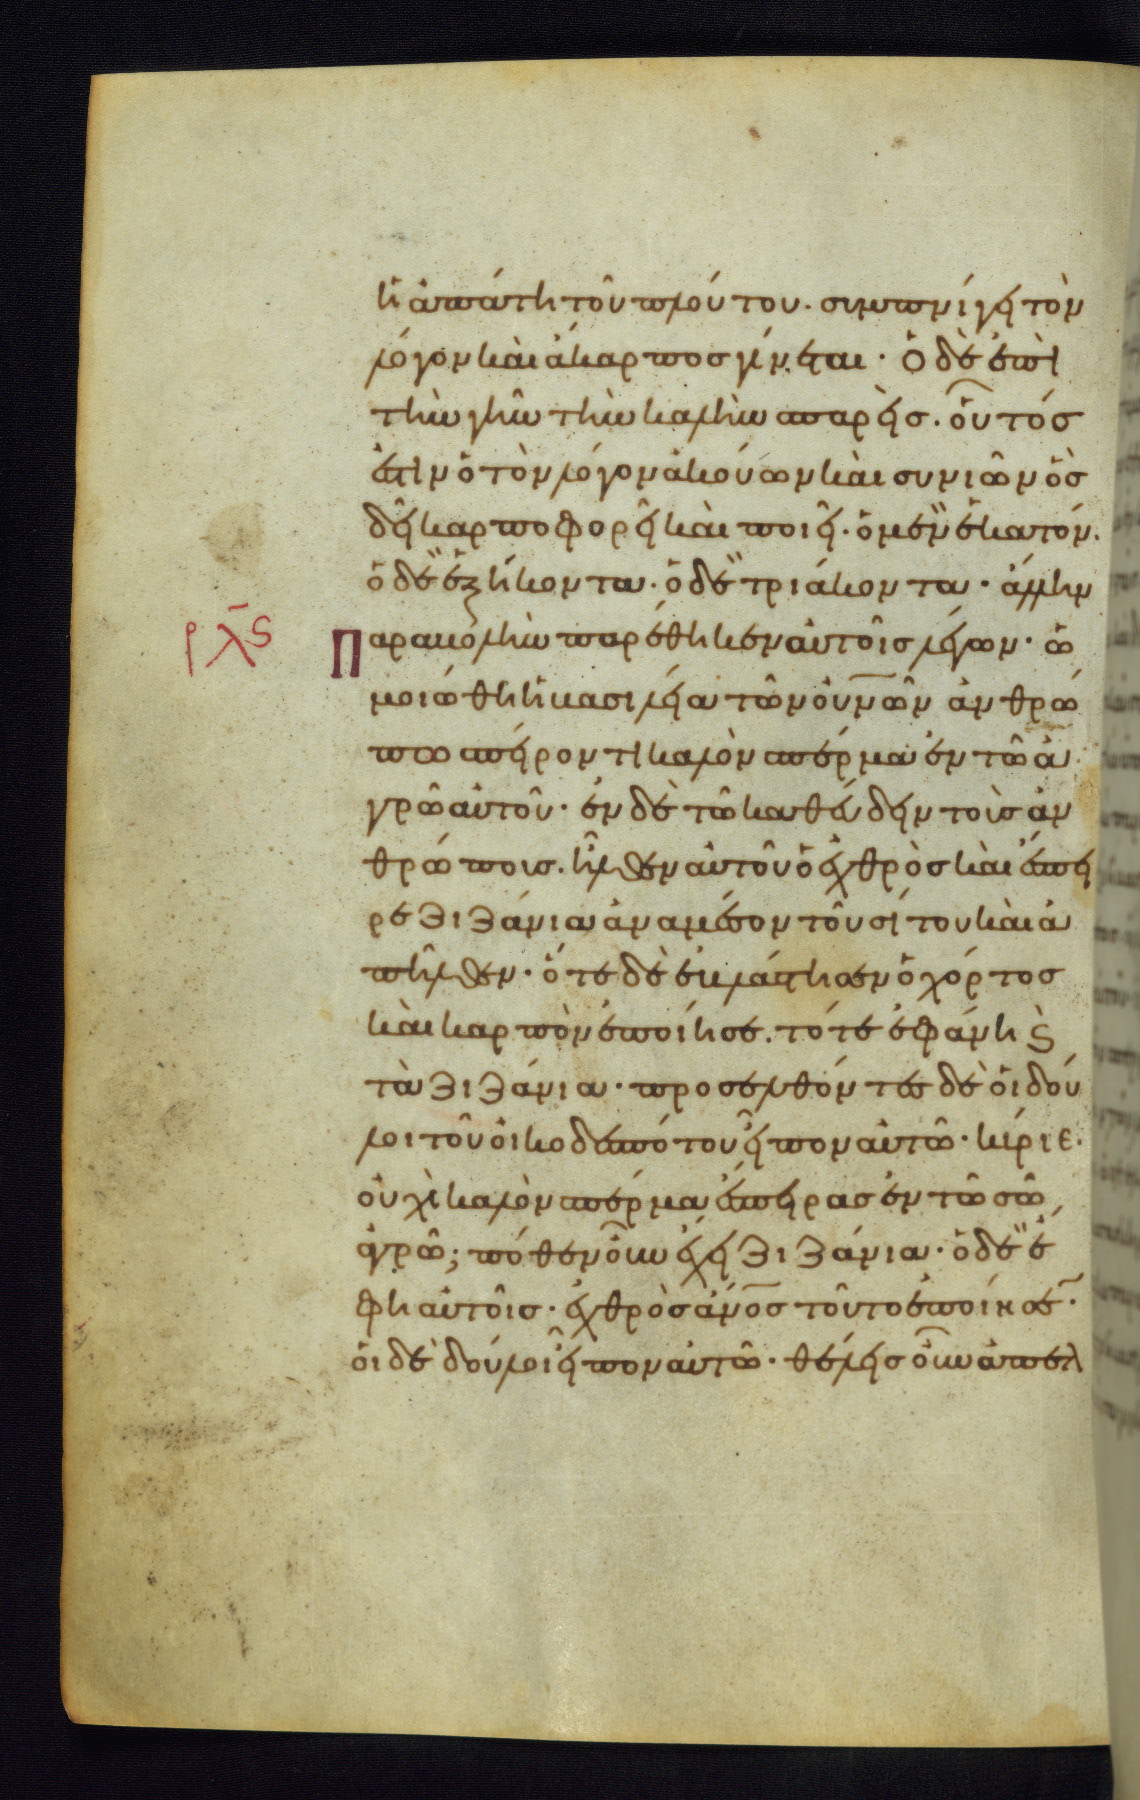 ἡ ἀπάτη τοῦ πλούτου. συμπνίγει τὸν
λόγον καὶ ἄκαρπος γίνεται· ὁ δὲ ἐπὶ
τὴν γῆν τὴν καλὴν σπαρεὶς. οὗτός
ἐστιν ὁ τὸν λόγον ἀκούων καὶ συνιῶν ὃς
δὴ καρποφορεῖ καὶ ποιεῖ· ὁ μὲν ἑκατόν.
ὁ δὲ ἑξήκοντα· ὁ δὲ τριάκοντα· ἄλλην
ρλς
Παραβολὴν παρέθηκεν αὐτοῖς λέγων· ὡ
μοιώθη ἡ βασιλεία τῶν οὐνῶν ἀνθρώ
πω σπείροντι καλὸν σπέρμα ἐν τῶ ἀ
γρῶ αὐτοῦ· ἐν δὲ τῶ καθεύδειν τοὺς ἀν
θρώποις. ἦλθεν αὐτοῦ ὁ ἐχθρὸς καὶ ἔσπει
ρε ζιζάνια ἀναμέσον τοῦ σίτου καὶ ἀ
πῆλθεν· ὅτε δὲ ἐβλάστησεν ὁ χόρτος
καὶ καρπὸν ἐποίησε. τότε ἐφάνη ϗ
τὰ ζιζάνια· προσελθόντες δὲ οἱ δοῦ
λοι τοῦ οἰκοδεσπότου εἶπον αὐτῶ· κύριε·
οὐχὶ καλὸν σπέρμα ἔσπειρας ἐν τῶ σῶ
ἀγρῶ; πόθεν οὖν ἔχει ζιζάνια· ὁ δὲ ἔ
φη αὐτοῖς· ἐχθρὸς ἄνος τοῦτο ἐποίησεν·
οἱ δὲ δοῦλοι εἶπον αὐτῶ· θέλεις οὖν ἀπελ